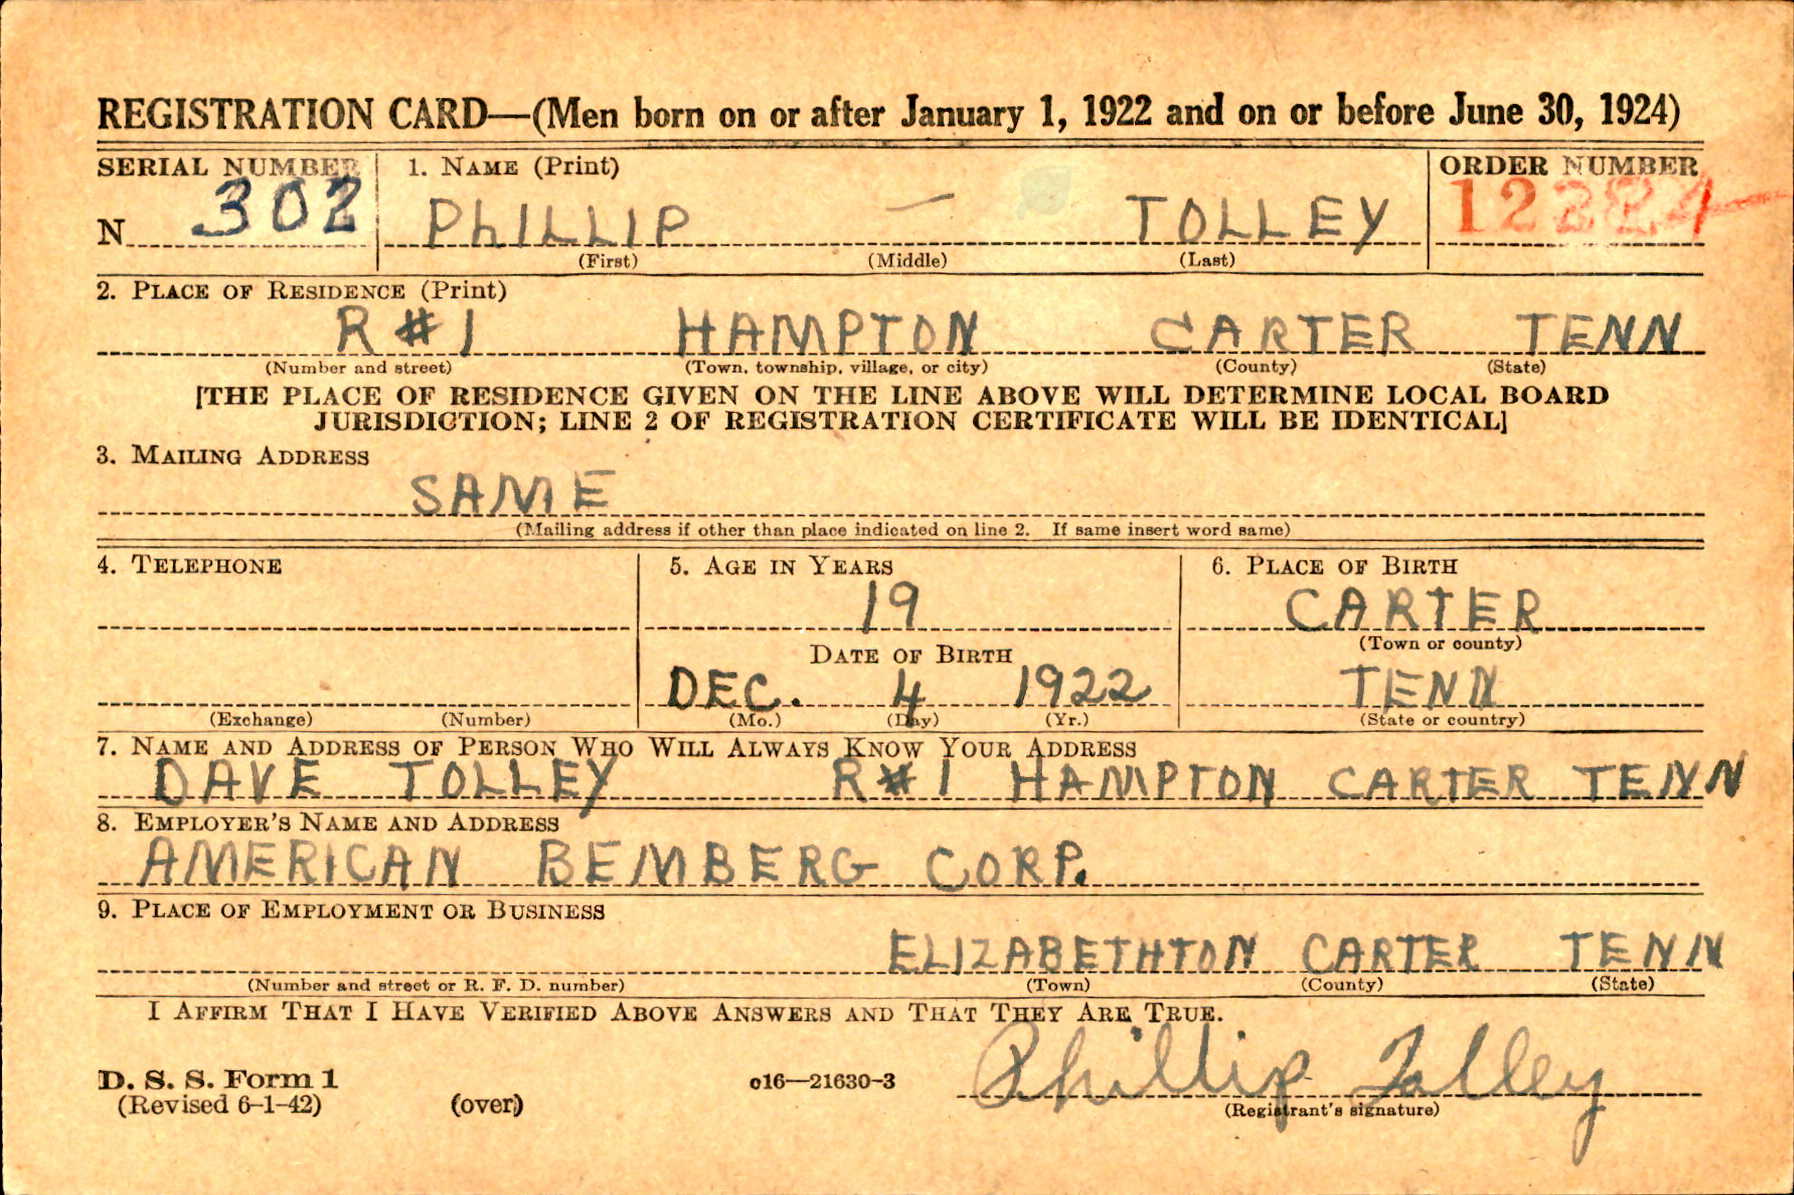 REGISTRATION CARD—(Men born on or after January 1, 1922 and on or before June 30, 1924)
SERIAL NUMBER 1. NAME (Print) ORDER NUMBER
N 302 PhILLIP — TOLLEY
(First) (Middle) (Last)
2. PLACE OF RESIDENCE (Print)
R #1 HAMPTON CARTER TENN
(Number and street) (Town, township, village, or city) (County) (State)
[THE PLACE OF RESIDENCE GIVEN ON THE LINE ABOVE WILL DETERMINE LOCAL BOARD
JURISDICTION; LINE 2 OF REGISTRATION CERTIFICATE WILL BE IDENTICAL]
3. MAILING ADDRESS
SAME
(Mailing address if other than place indicated on line 2. If same insert word same)
4. TELEPHONE 5. AGE IN YEARS 6. PLACE OF BIRTH
19 CARTER
(Town or county)
DATE OF BIRTH
DEC. 4 1922 TENN
(Exchange) (Number) (Mo.) (Day) (Yr.) (State or country)
7. NAME AND ADDRESS OF PERSON WHO WILL ALWAYS KNOW YOUR ADDRESS
DAVE TOLLEY R#1 HAMPTON CARTER TENN
8. EMPLOYER'S NAME AND ADDRESS
AMERICAN BEMBERG CORP.
9. PLACE OF EMPLOYMENT OR BUSINESS
ELIZABETHTON CARTER TENN
(Number and street or R. F. D. number) (Town) (County) (State)
I AFFIRM THAT I HAVE VERIFIED ABOVE ANSWERS AND THAT THEY ARE TRUE.
D. S. S. Form 1
(Revised 6-1-42) (over) c16—21630-3 Phillip Tolley
(Registrant's signature)